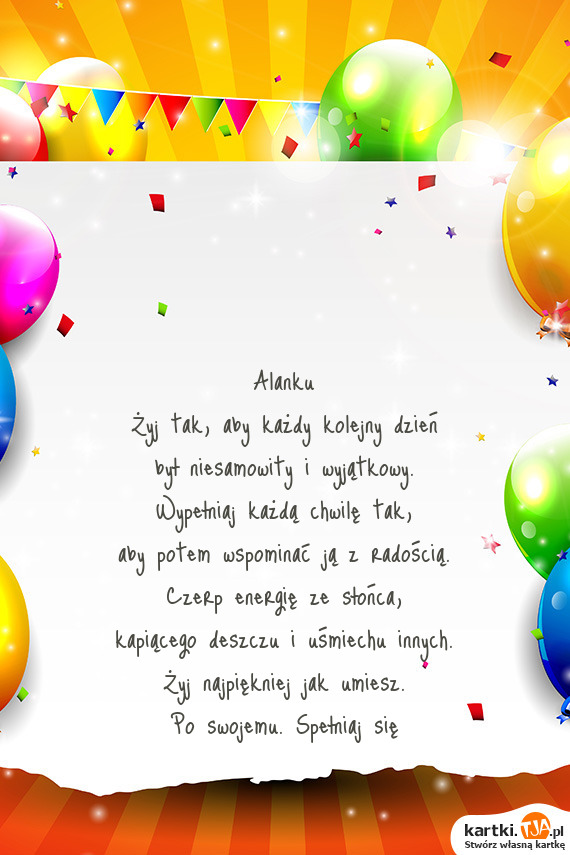 Alanku
Żyj tak, aby każdy kolejny dzień
był niesamowity i wyjątkowy.
Wypełniaj każdą chwilę tak,
aby potem wspominać ją z radością.
Czerp energię ze słońca,
kapiącego deszczu i uśmiechu innych.
Żyj najpiękniej jak umiesz.
Po swojemu. Spełniaj się
kartki.TJA.pl
Stwórz własną kartkę